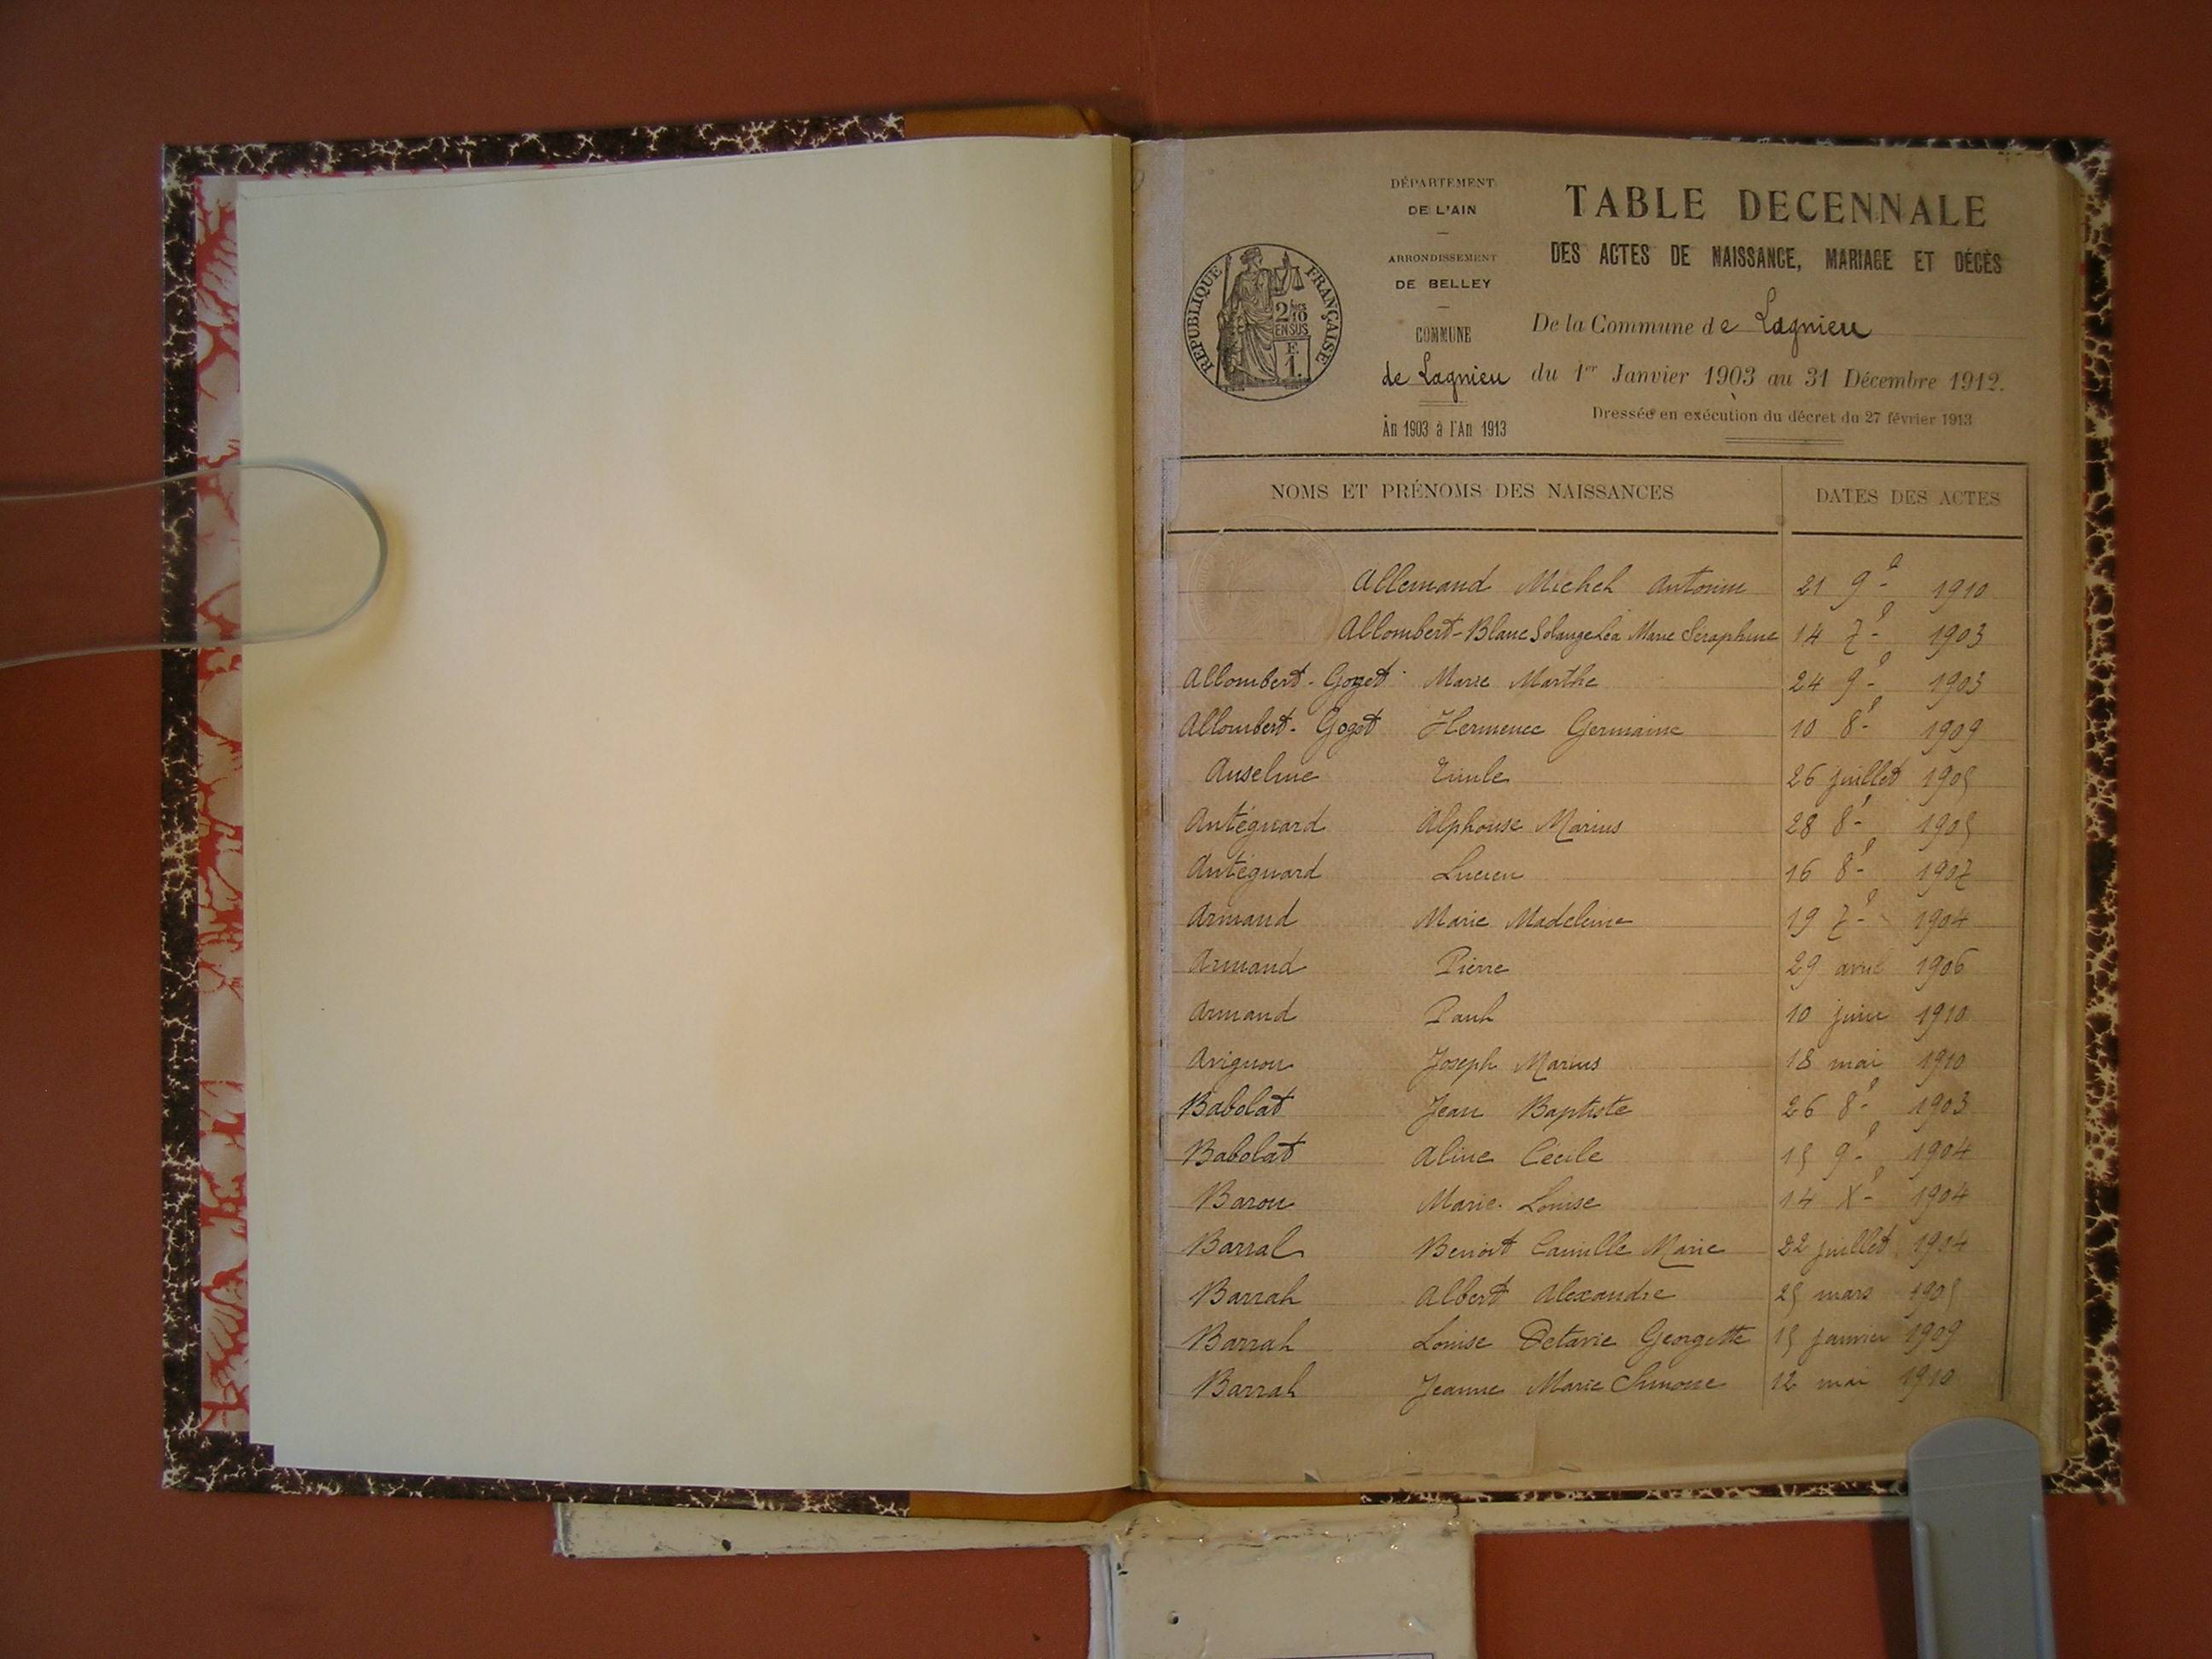 DÉPARTEMENT
DE L'AIN
ARRONDISSEMENT
DE BELLEY
COMMUNE
de Lagnieu
An 1903 à l'An 1913
RÉPUBLIQUE FRANÇAISE
2/10
EN SUS
E
1.
TABLE DECENNALE
DES ACTES DE NAISSANCE, MARIAGE ET DÉCÈS
De la Commune de Lagnieu
du 1er Janvier 1903 au 31 Décembre 1912.
Dressée en exécution du décret du 27 février 1913
NOMS ET PRÉNOMS DES NAISSANCES DATES DES ACTES
Allemand Michel Antonin 21 9e 1910
Allombert-Blanc Solange Léa Marie Séraphine 14 7e 1903
Allombert-Goget Marie Marthe 24 9e 1903
Allombert-Goget Hermence Germaine 10 8e 1909
Anselme 26 juillet 1905
Antéguard Alphonse Marius 28 8e 1905
Antéguard Lucien 16 8e 1907
Armand Marie Madeleine 19 7e 1904
Armand Pierre 29 avril 1906
Armand Paul 10 juin 1910
Avignon Joseph Marius 18 mai 1910
Babolat Jean Baptiste 26 8e 1903
Babolat Aline Cécile 15 9e 1904
Baron Marie-Louise 14 Xe 1904
Barral Benoit Camille Marie 22 juillet 1904
Barral Albert Alexandre 25 mars 1905
Barral Louise Octavie Georgette 15 janvier 1909
Barral Jeanne Marie Simone 12 mai 1910